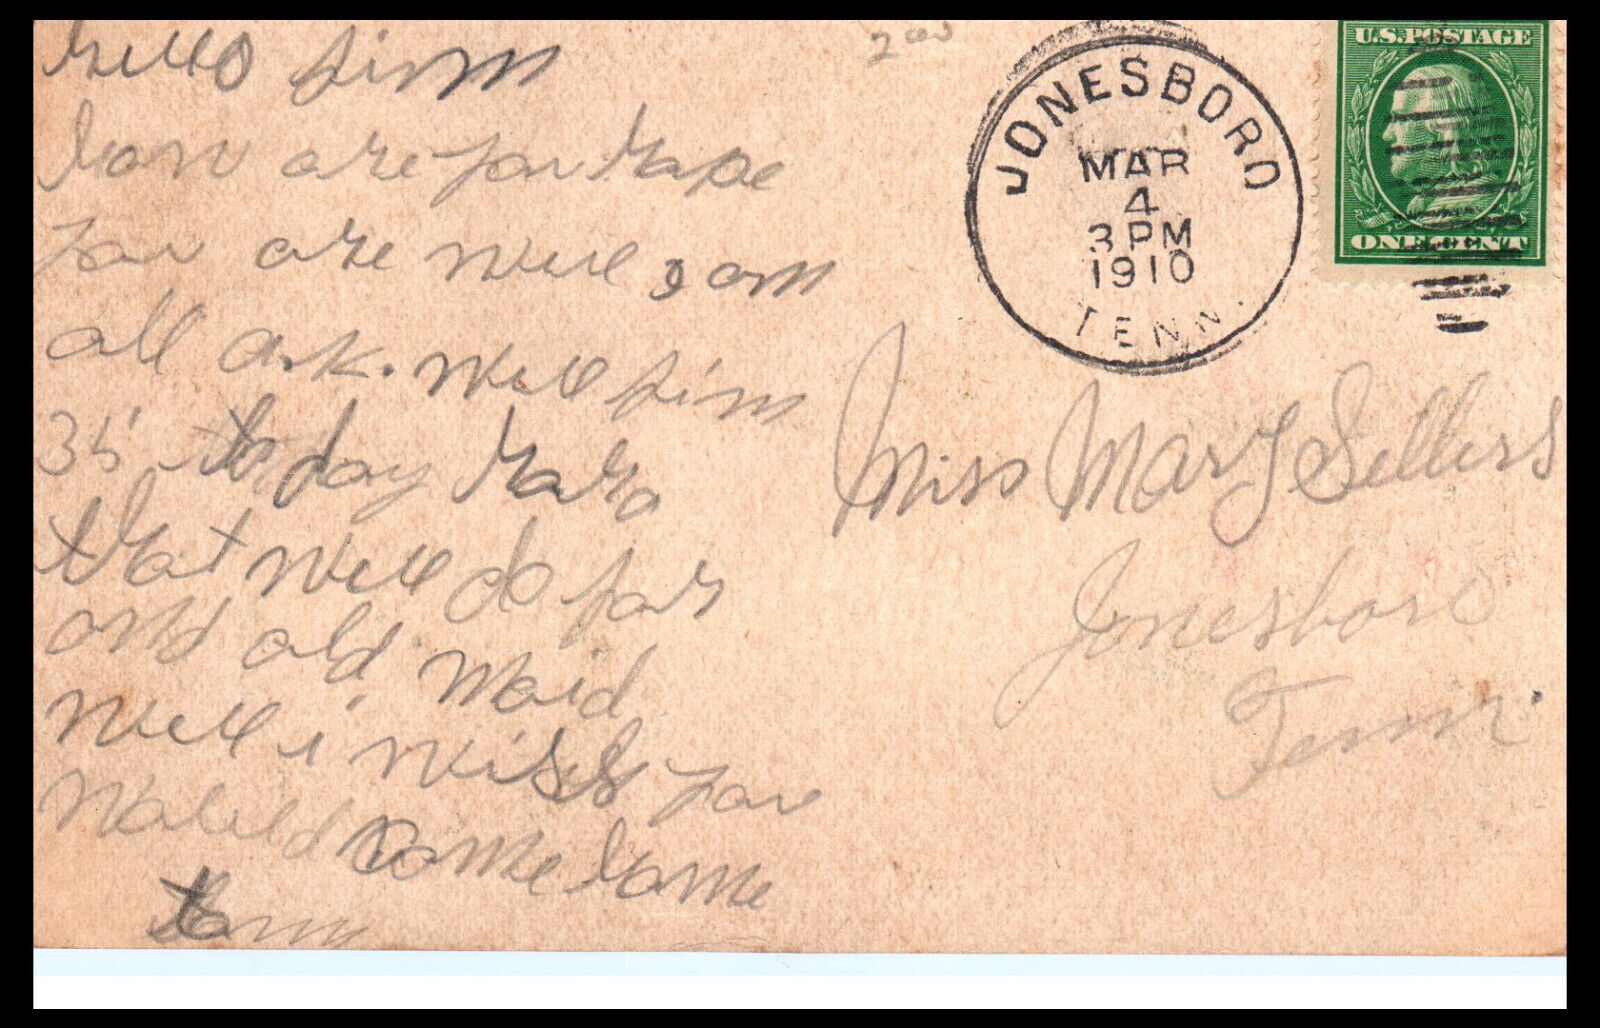 Hello Jim
how are you hope
you are well I am
all ork. Well Jim
35 to day haha
that will do for
and old maid
well i wish you
would come home
Tom
2cs
JONESBORO
MAR
4
3 PM
1910
TENN.
U.S. POSTAGE
ONE CENT
Miss Mary Sellers
Jonesboro
Tenn.